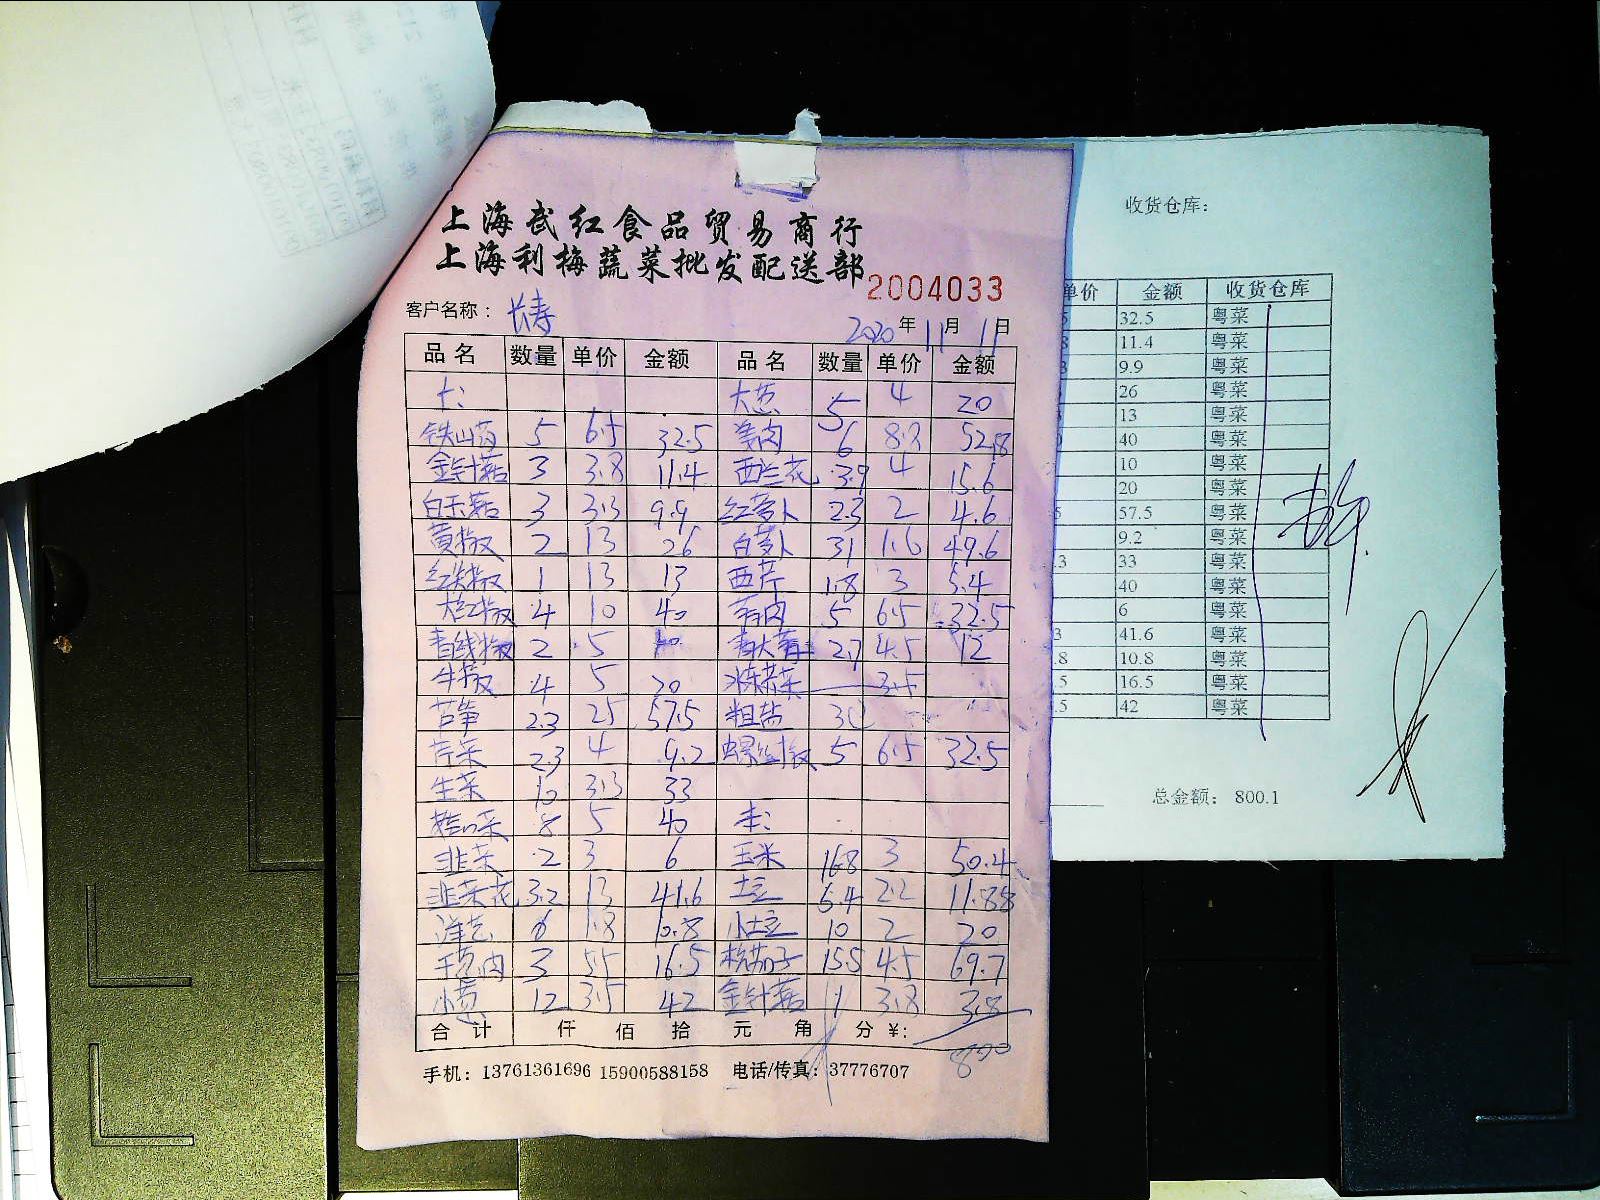 上海武红食品贸易商行
上海利梅蔬菜批发配送部
2004033
客户名称：长寿
2020年11月1日
品名 数量 单价 金额 品名 数量 单价 金额
上： 大葱 5 4 20
铁山药 5 6.5 32.5 姜肉 6 8.8 52.8
金针菇 3 3.8 11.4 西兰花 3.9 4 15.6
白玉菇 3 3.3 9.9 红萝卜 2.3 2 4.6
黄椒 2 13 26 白萝卜 31 1.6 49.6
红尖椒 1 13 13 西芹 1.8 3 5.4
大红椒 4 10 40 蒜肉 5 6.5 32.5
青线椒 2 5 10 青大蒜 2.7 4.5 12
牛椒 4 5 20 3.5
芦笋 2.3 25 57.5 粗盐
芹菜 2.3 4 9.2 螺丝椒 5 6.5 32.5
生菜 10 3.3 33
8 5 40
韭菜 2 3 6 玉米 16.8 3 50.4
韭菜花 3.2 13 41.6 土豆 5.4 2.2 11.88
洋葱 6 1.8 10.8 小土豆 10 2 20
干葱肉 3 5.5 16.5 杭茄子 15.5 4.5 69.7
小葱 12 3.5 42 金针菇 1 3.8 3.8
合计 仟 佰 拾 元 角 分 ¥:
800
手机：13761361696 15900588158 电话/传真：37776707
收货仓库：
单价 金额 收货仓库
32.5 粤菜
11.4 粤菜
9.9 粤菜
26 粤菜
13 粤菜
40 粤菜
10 粤菜
20 粤菜
57.5 粤菜
9.2 粤菜
33 粤菜
40 粤菜
6 粤菜
41.6 粤菜
10.8 粤菜
16.5 粤菜
42 粤菜
总金额： 800.1